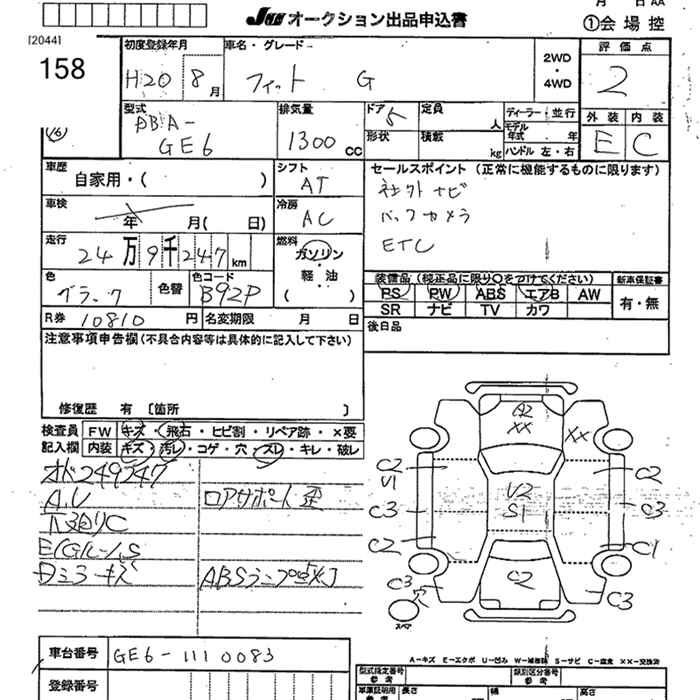 月 日 AA
JU オークション出品申込書
①会場控
[2044]
158
初度登録年月
H20 8月
車名・グレード
フィット G
2WD・4WD
評価点
2
型式
DBA-
GE6
排気量
1300 cc
ドア 5
形状
定員 人
積載 kg
ディーラー・並行
モデル年式 年
ハンドル 左・右
外装 内装
E C
車歴
自家用・( )
シフト
AT
セールスポイント (正常に機能するものに限ります)
社外ナビ
バックカメラ
ETC
車検
年 月( 日)
冷房
AC
走行
24万9千247km
燃料
ガソリン
軽・油
( )
色
ブラック
色替
色コード
B92P
装備品 (純正品に限り○をつけてください)
PS PW ABS エアB AW
SR ナビ TV カワ
新車保証書
有・無
R券 10810 円
名変期限 月 日
後日品
注意事項申告欄(不具合内容等は具体的に記入して下さい)
修復歴 有 〔箇所 〕
検査員記入欄
FW キズ・飛石・ヒビ割・リペア跡・×要
内装 キズ・汚レ・コゲ・穴・ズレ・キレ・破レ
オド249247
A.U
下廻りC
ロアサポート歪
ABSランプ点灯
A2
XX
XX
C2
U1
C3
C2
U2
S1
C2
C3
C1
C2
C3
穴
C3
スペア
A-キズ E-エクボ U-凹ミ W-補修跡 S-サビ C-腐食 XX-交換済
車台番号 GE6-1110083
登録番号
型式指定番号
類別区分番号
車庫証明用
長さ
幅
高さ